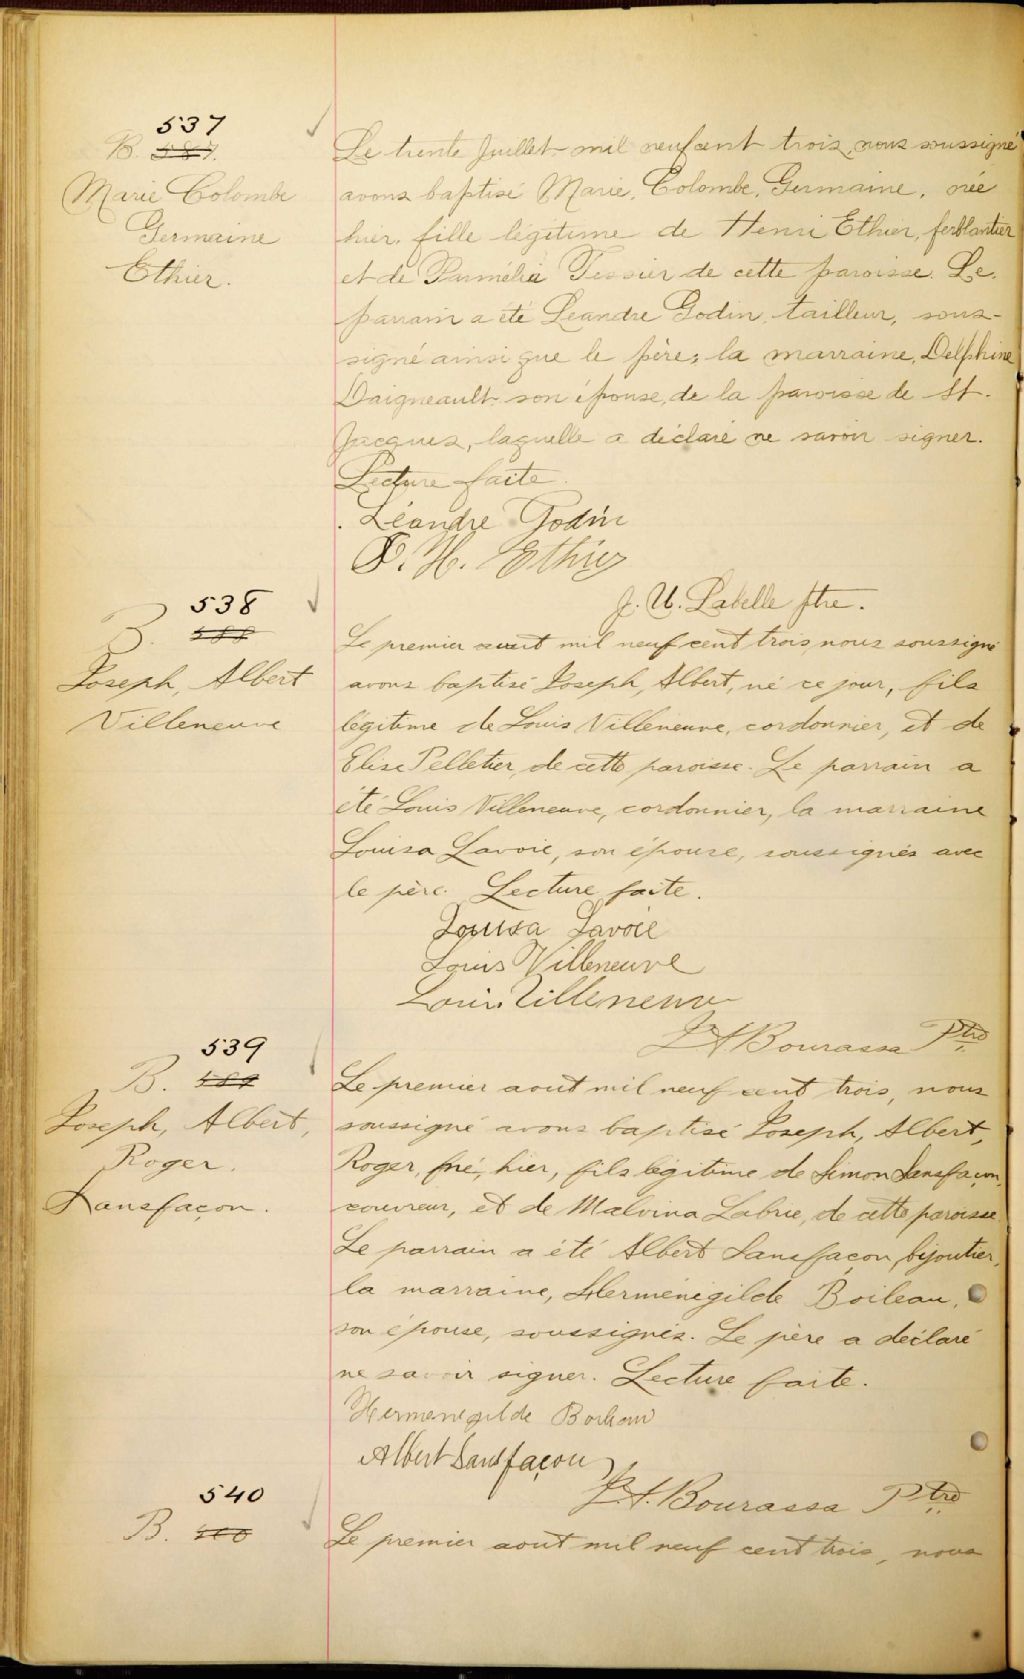 537
B. 587.
Marie Colombe
Germaine
Ethier.
Le trente Juillet mil neuf cent trois, nous soussigné
avons baptisé Marie, Colombe, Germaine, née
hier, fille légitime de Henri Ethier, ferblantier
et de Parmélia Tessier de cette paroisse. Le
parrain a été Léandre Godin, tailleur, sous-
signé ainsi que le père; la marraine, Delphine
Daigneault son épouse, de la paroisse de St.
Jacques, laquelle a déclaré ne savoir signer.
Lecture faite.
Léandre Godin
F. H. Ethier
J. U. Labelle ptre.
538
B. 588
Joseph, Albert
Villeneuve
Le premier aout mil neuf cent trois, nous soussigné
avons baptisé Joseph, Albert, né ce jour, fils
légitime de Louis Villeneuve, cordonnier, et de
Elise Pelletier, de cette paroisse. Le parrain a
été Louis Villeneuve, cordonnier, la marraine
Louisa Lavoie, son épouse, soussignés avec
le père. Lecture faite.
Louisa Lavoie
Louis Villeneuve
Louis Villeneuve
Bourassa Ptre
539
B. 589
Joseph, Albert,
Roger.
Sansfaçon.
Le premier aout mil neuf cent trois, nous
soussigné avons baptisé Joseph, Albert,
Roger, né, hier, fils légitime de Simon Sansfaçon,
couvreur, et de Malvina Labrie, de cette paroisse.
Le parrain a été Albert Sansfaçon, bijoutier,
la marraine, Herménégilde Boileau,
son épouse, soussignés. Le père a déclaré
ne savoir signer. Lecture faite.
Hermenegilde Boileau
Albert Sansfaçon
Bourassa Ptre
540
B.
Le premier aout mil neuf cent trois, nous